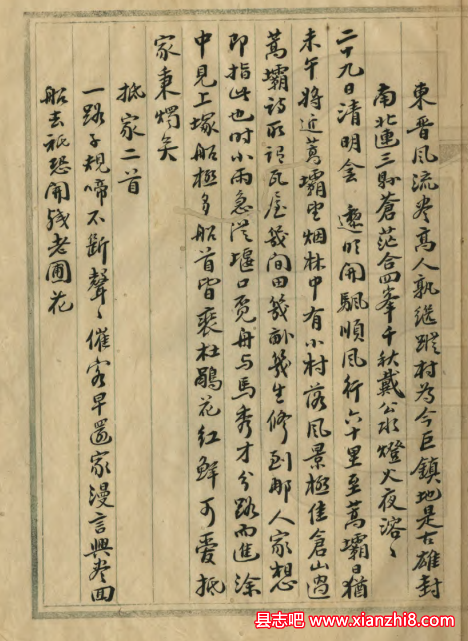 東晉風流盡高人孰繼蹤村為今巨鎮地是古雄封
南北連三縣蒼茫合四峯千秋戴公水燈火夜溶〻
二十九日清明金 遲明開颿順風行六十里至蒿壩日猶
未午將近蒿壩望烟林中有小村落風景極佳倉山過
蒿壩詩所謂瓦屋幾間田幾畝幾生修到那人家想
即指此也時小雨急從堰口覓舟与馬秀才分路而進涂
中見上塚船極多船首皆裹杜鵑花紅鮮可愛抵
家秉燭矣
抵家二首
一路子規啼不斷聲〻催客早還家漫言興盡回
船去祇恐開殘老圃花
县志吧 www.xianzhi8.com